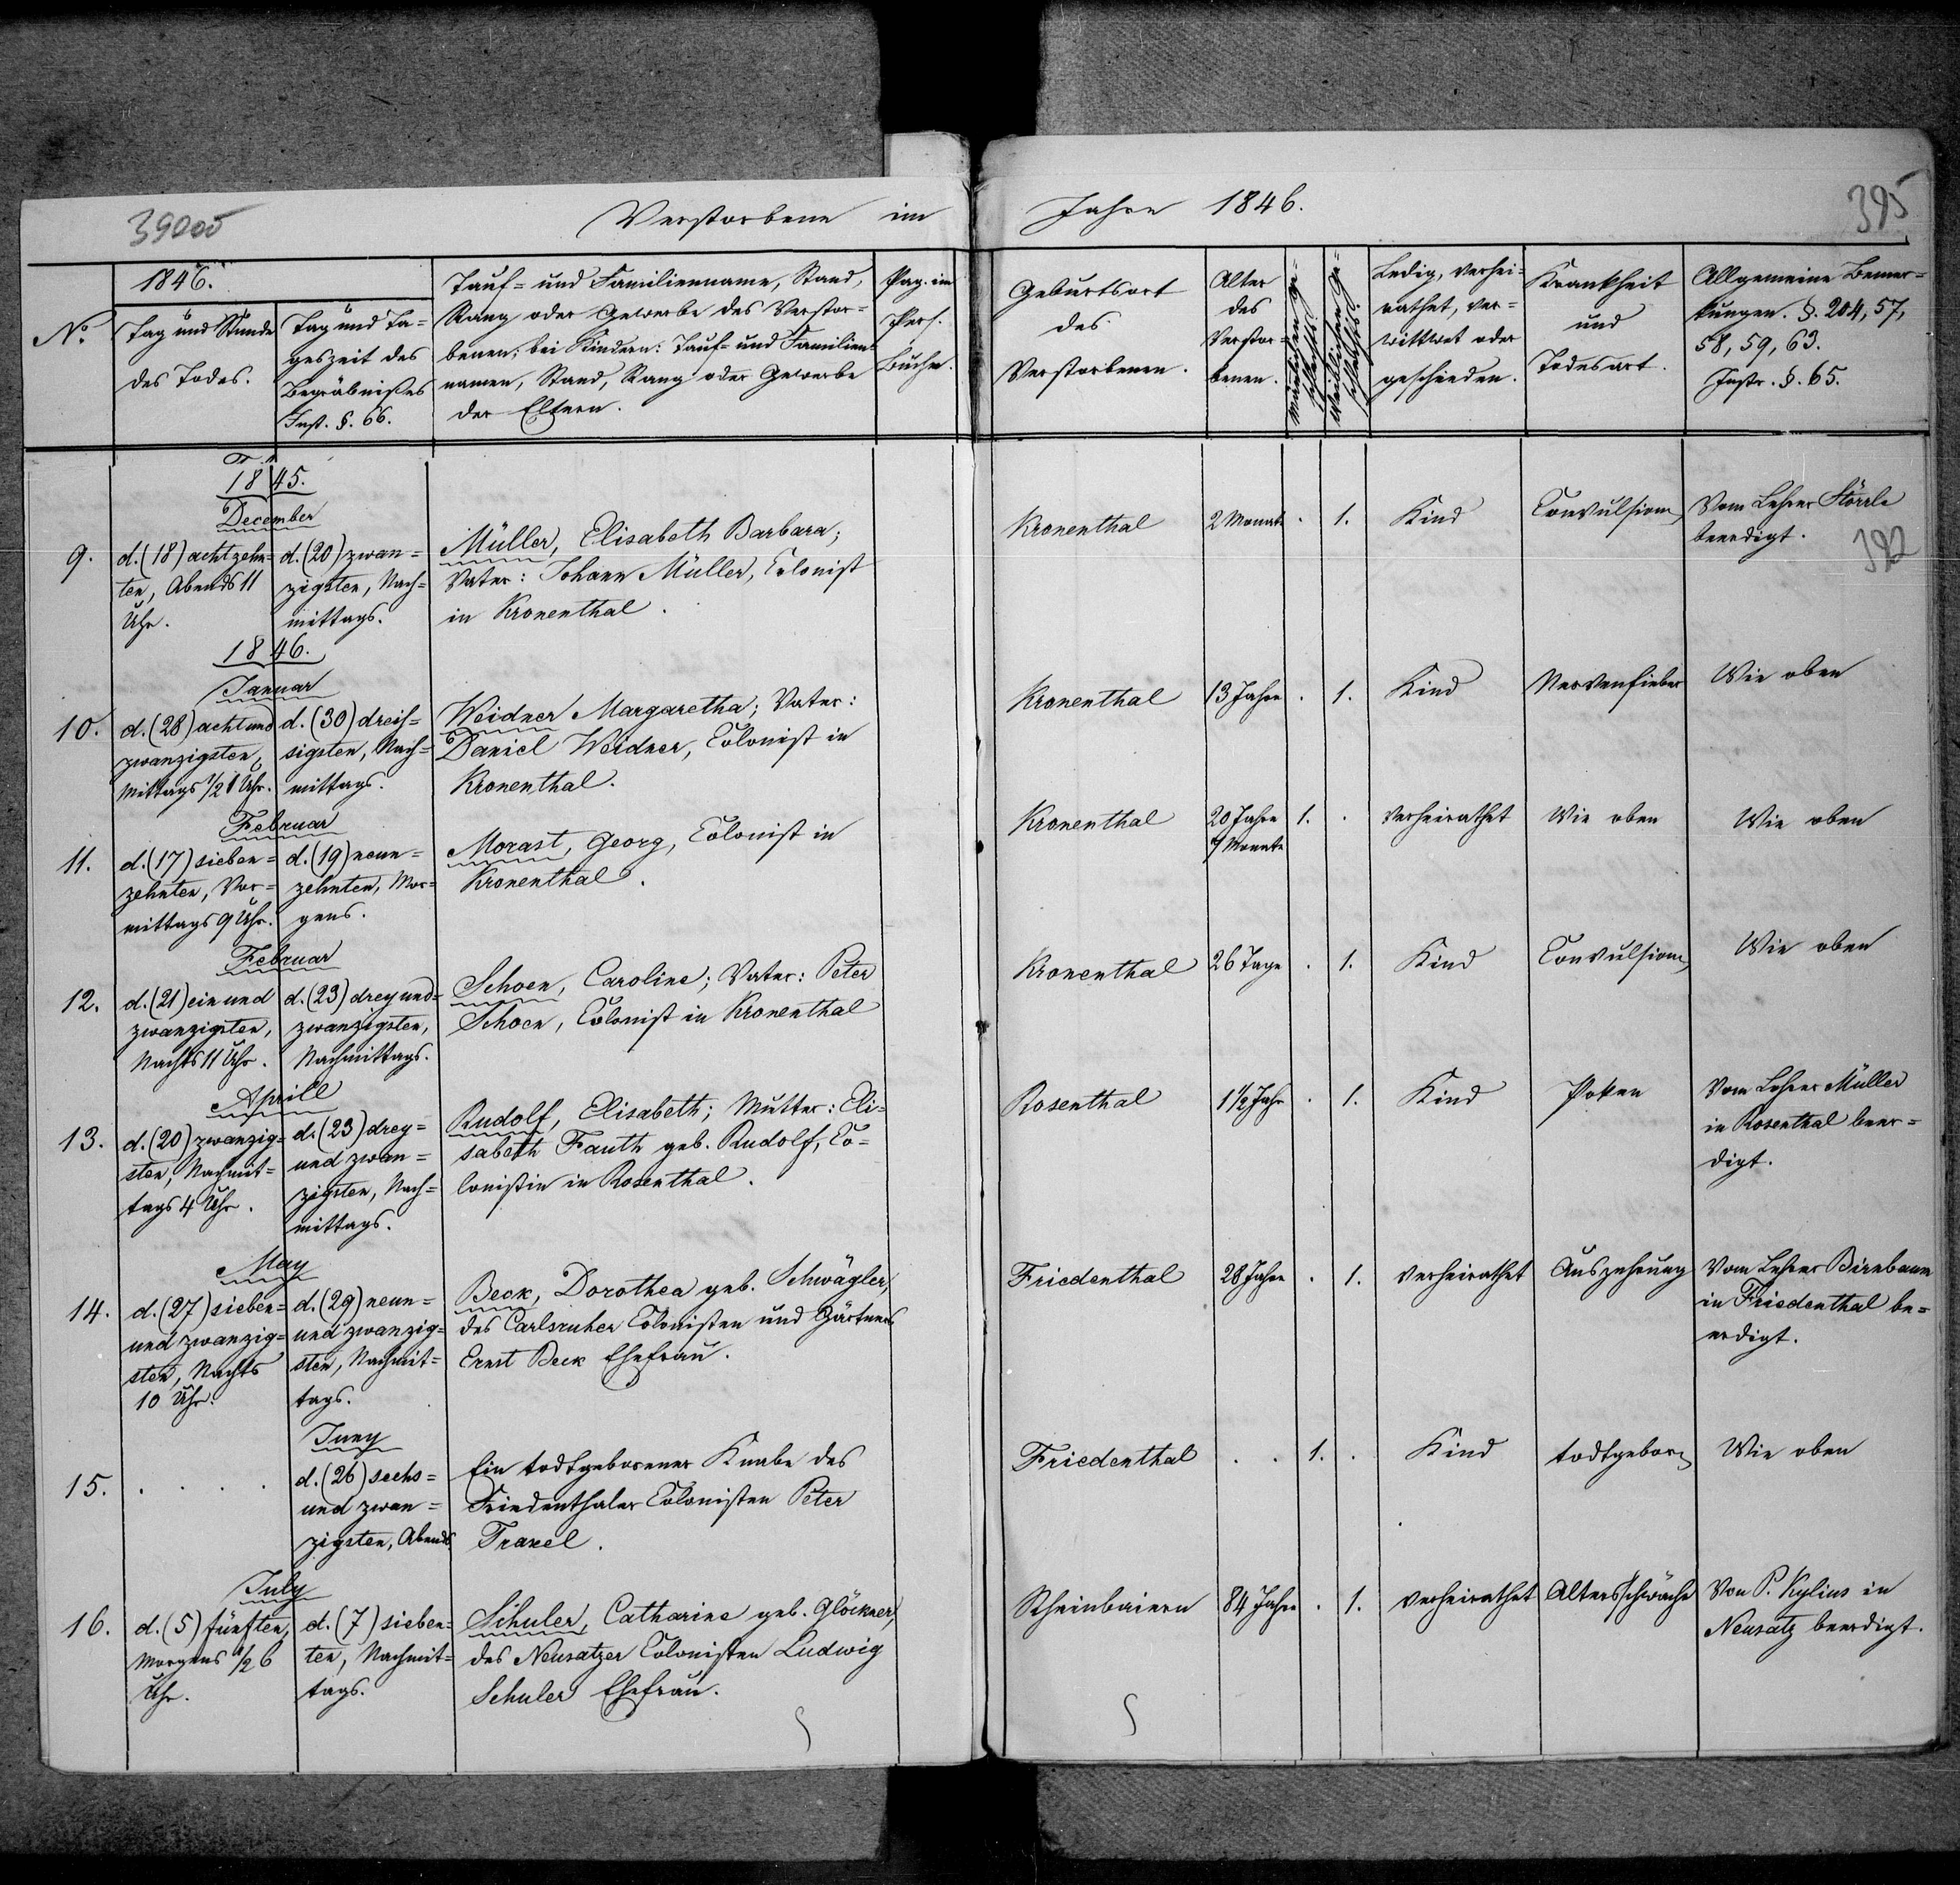 39000
Verstorbene im Jahre 1846.
395
No.
1846.
Tag und Stunde
des Todes.
Tag und Ta=
geszeit des
Begräbnißes
Inst. §. 66.
Tauf= und Familienname, Stand,
Rang oder Gewerbe des Verstor=
benen; bei Kindern: Tauf= und Familien=
namen, Stand, Rang oder Gewerbe
der Eltern.
Pag. im
Pers.
Buche.
Geburtsort
des
Verstorbenen.
Alter
des
Verstor=
benen.
Männlichen Ge=
schlechts.
Weiblichen Ge=
schlechts.
Ledig, verhei=
rathet, ver=
wittwet oder
geschieden.
Krankheit
und
Todesart.
Allgemeine Bemer=
kungen. §. 204, 57,
58, 59, 63.
Instr. §. 65.
1845.
December
9.
d. (18) achtzehn=
ten, Abends 11
Uhr.
d. (20) zwan=
zigsten, Nach=
mittags.
Müller, Elisabeth Barbara;
Vater: Johann Müller, Colonist
in Kronenthal.
Kronenthal
2 Monate
.
1.
Kind
Convulsionen
Vom Lehrer Störrle
beerdigt.
392
1846.
Januar
10.
d. (28) acht und
zwanzigsten,
Mittags 1/2 1 Uhr.
d. (30) dreis=
sigsten, Nach=
mittags.
Weidner Margaretha; Vater:
Daniel Weidner, Colonist in
Kronenthal.
Kronenthal
13 Jahre
.
1.
Kind
Nervenfieber
Wie oben
Februar
11.
d. (17) sieben=
zehnten, Vor=
mittags 9 Uhr.
d. (19) neun=
zehnten, Mor=
gens.
Morast, Georg, Colonist in
Kronenthal.
Kronenthal
20 Jahre
7 Monate
1.
.
verheirathet
Wie oben
Wie oben
Februar
12.
d. (21) ein und
zwanzigsten,
Nachts 11 Uhr.
d. (23) drey und=
zwanzigsten,
Nachmittags.
Schoen, Caroline; Vater: Peter
Schoen, Colonist in Kronenthal
Kronenthal
26 Tage
.
1.
Kind
Convulsionen
Wie oben
Aprill
13.
d. (20) zwanzig=
sten, Nachmit=
tags 4 Uhr.
d. (23) drey=
und zwan=
zigsten, Nach=
mittags.
Rudolf, Elisabeth; Mutter: Eli=
sabeth Fauth geb. Rudolf, Co=
lonistin in Rosenthal.
Rosenthal
1 1/2 Jahr
.
1.
Kind
Poken
Vom Lehrer Müller
in Rosenthal beer=
digt.
May
14.
d. (27) sieben=
und zwanzig=
sten, Nachts
10 Uhr.
d. (29) neun=
und zwanzig=
sten, Nachmit=
tags.
Beck, Dorothea geb. Schwägler,
des Carlsruher Colonisten und Gärtners
Ernst Beck Ehefrau.
Friedenthal
28 Jahre
.
1.
verheirathet
Auszehrung
Vom Lehrer Birnbaum
in Friedenthal be=
erdigt.
Juny
15.
. . . .
d. (26) sechs=
und zwan=
zigsten, Abends.
Ein todtgeborener Knabe des
Friedenthaler Colonisten Peter
Traxel.
Friedenthal
. .
1.
.
Kind
todtgeboren
Wie oben
July
16.
d. (5) fünften,
Morgens 1/2 6
Uhr.
d. (7) sieben=
ten, Nachmit=
tags.
Schuler, Catharine geb. Glöckner,
des Neusatzer Colonisten Ludwig
Schuler Ehefrau.
Rheinbaiern
84 Jahre
.
1.
verheirathet
Altersschwäche
Von P. Kylius in
Neusatz beerdigt.